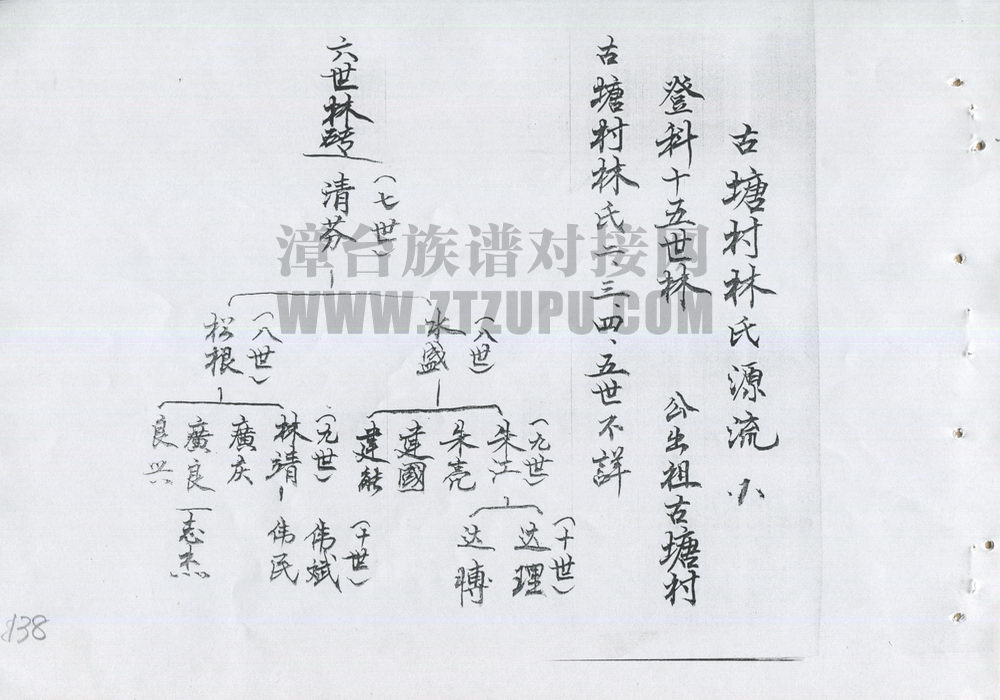 古塘村林氏源流 小
登科十五世林 公出祖古塘村
古塘村林氏二、三、四、五世不詳
六世林
(七世)
清芬
(八世)
水盛
(八世)
松根
(九世)
朱江
朱亮
建國
建能
(九世)
林靖
廣庆
廣良
良兴
(十世)
达理
达
(十世)
伟斌
伟民
志杰
漳台族谱对接网
WWW.ZTZUPU.COM
138